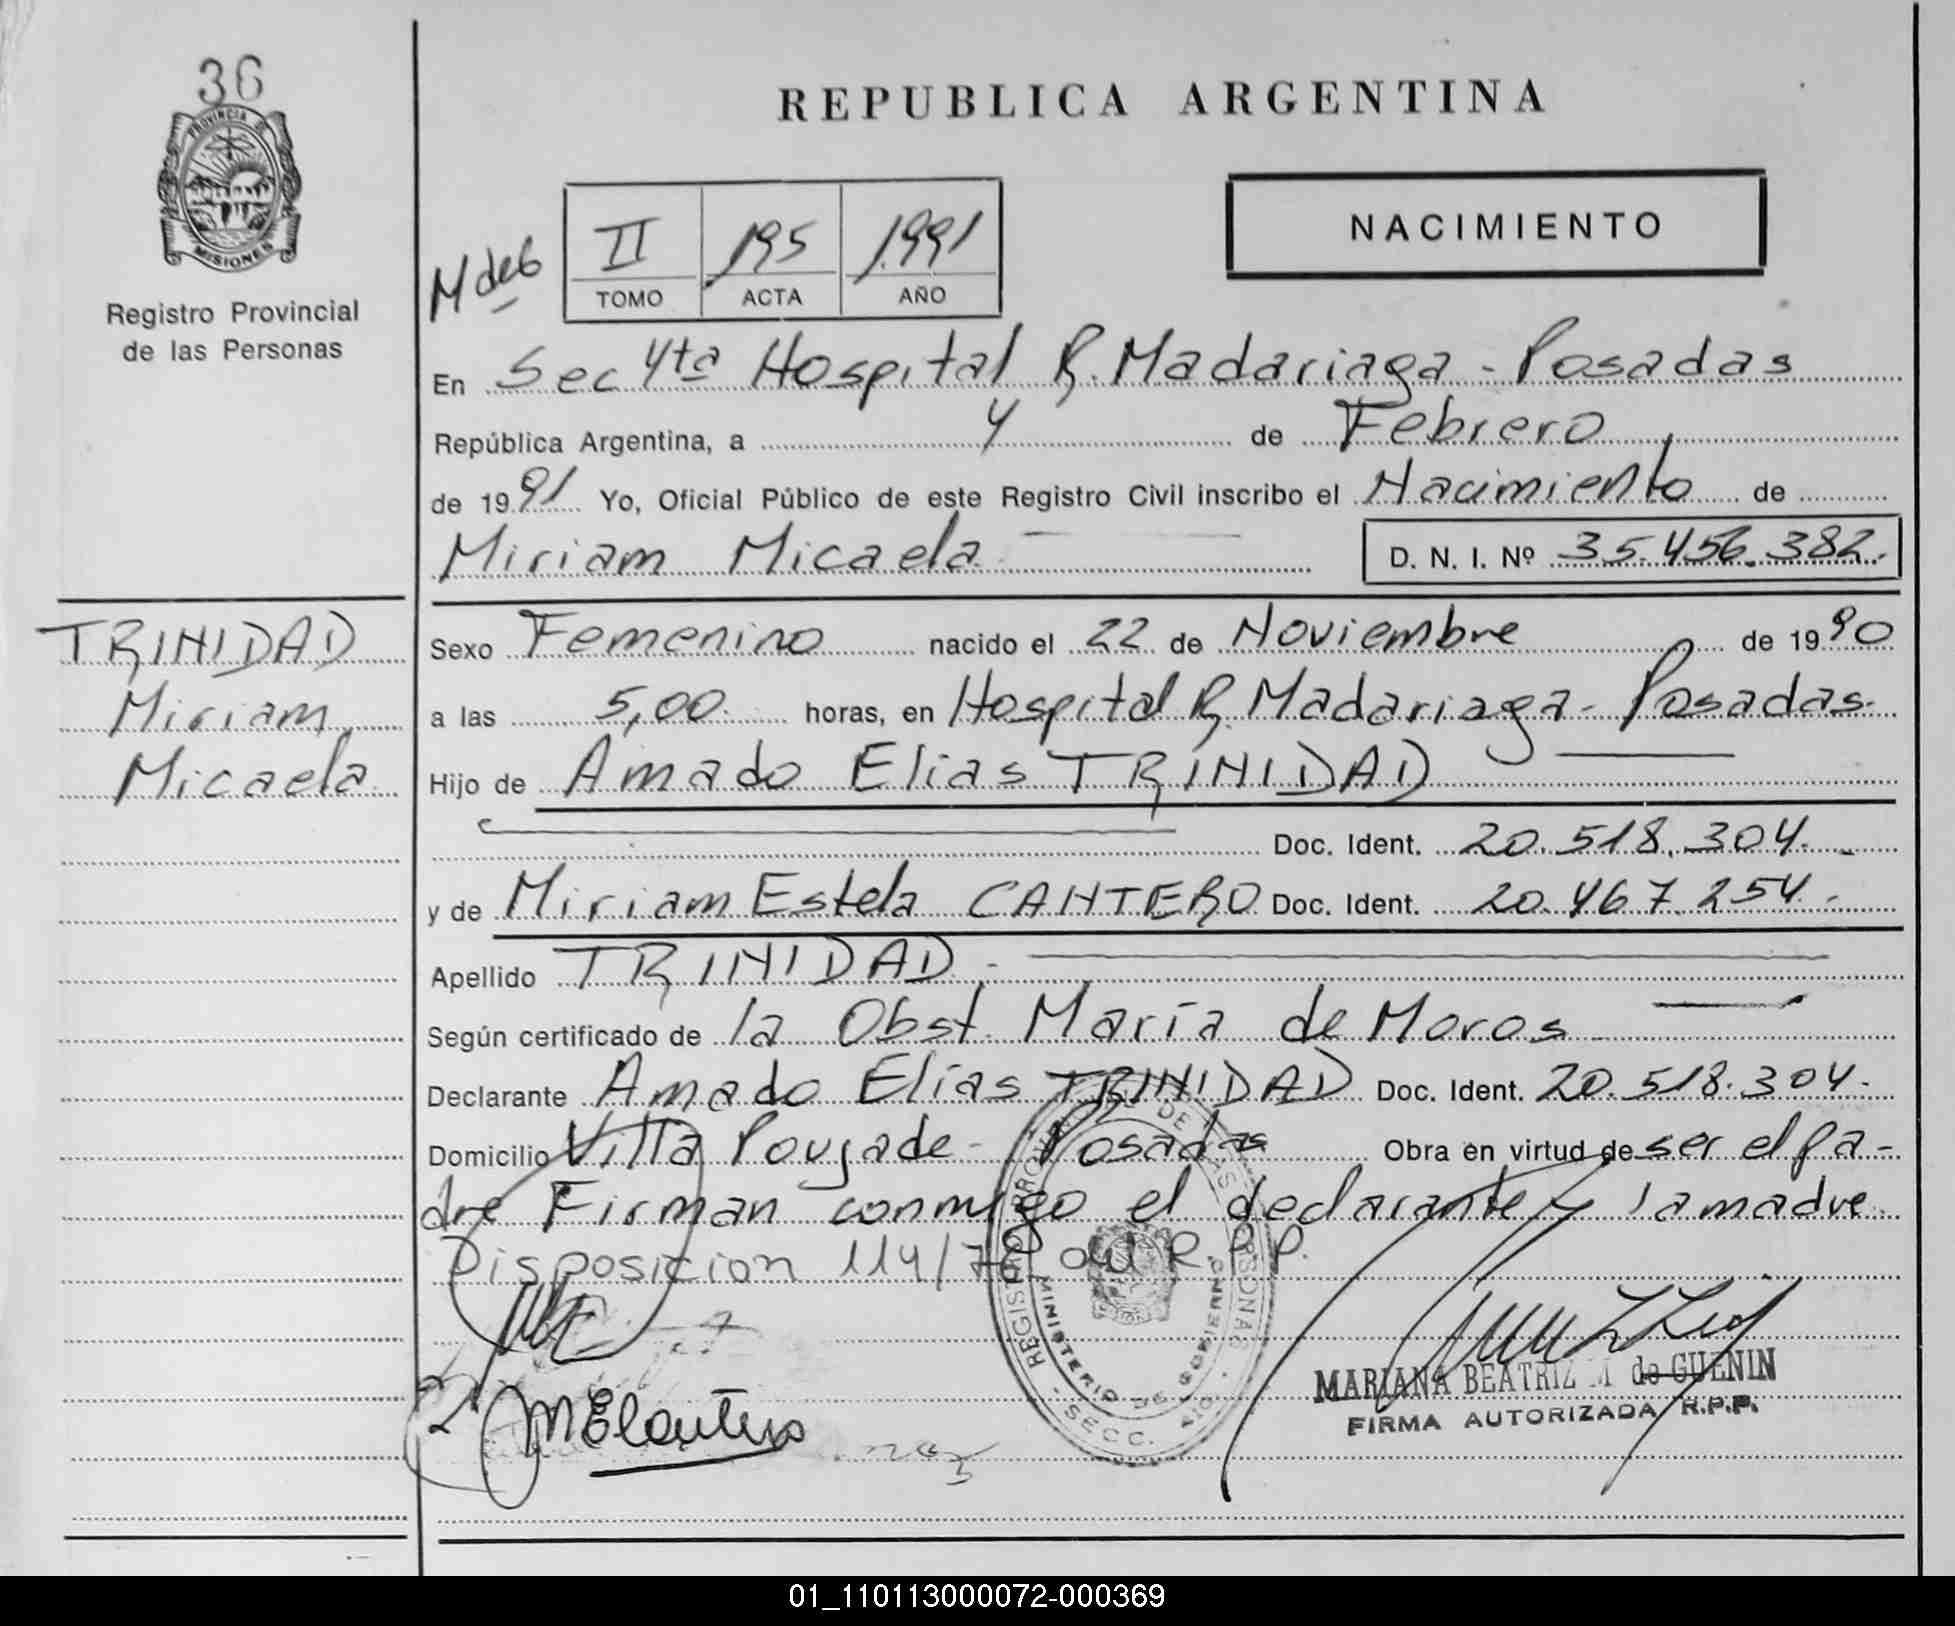 36
PROVINCIA DE
MISIONES
Registro Provincial
de las Personas
TRINIDAD
Miriam
Micaela
REPUBLICA ARGENTINA
NACIMIENTO
II 195 1991
TOMO ACTA AÑO
En Sec 4ta Hospital R. Madariaga - Posadas
República Argentina, a 4 de Febrero
de 1991 Yo, Oficial Público de este Registro Civil inscribo el Nacimiento de
Miriam Micaela D. N. I. Nº 35.456.382.
Sexo Femenino nacido el 22 de Noviembre de 1990
a las 5,00 horas, en Hospital R. Madariaga - Posadas.
Hijo de Amado Elias TRINIDAD
Doc. Ident. 20.518.304.-
y de Miriam Estela CANTERO Doc. Ident. 20.467.254.-
Apellido TRINIDAD -
Según certificado de la Obst. María de Moros
Declarante Amado Elías TRINIDAD Doc. Ident. 20.518.304.
Domicilio Villa Poujade - Posadas Obra en virtud de ser el pa-
dre Firman conmigo el declarante y la madre.
Disposicion 114/76 del R.P.P.
REGISTRO PROVINCIAL DE LAS PERSONAS
MINISTERIO DE GOBIERNO
SECC. 4ta
MARIANA BEATRIZ M de GUENIN
FIRMA AUTORIZADA R.P.P.
01_110113000072-000369